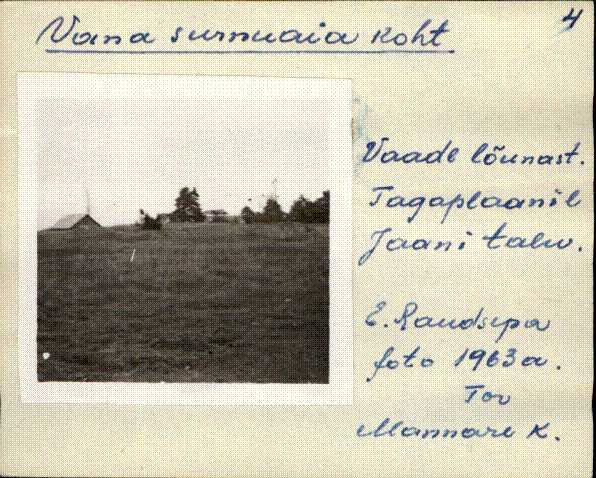 4
Vana surnuaia koht
Vaade lõunast.
Tagaplaanil
Jaani talu.
E. Raudsepa
foto 1963 a.
Tor
Mannare k.